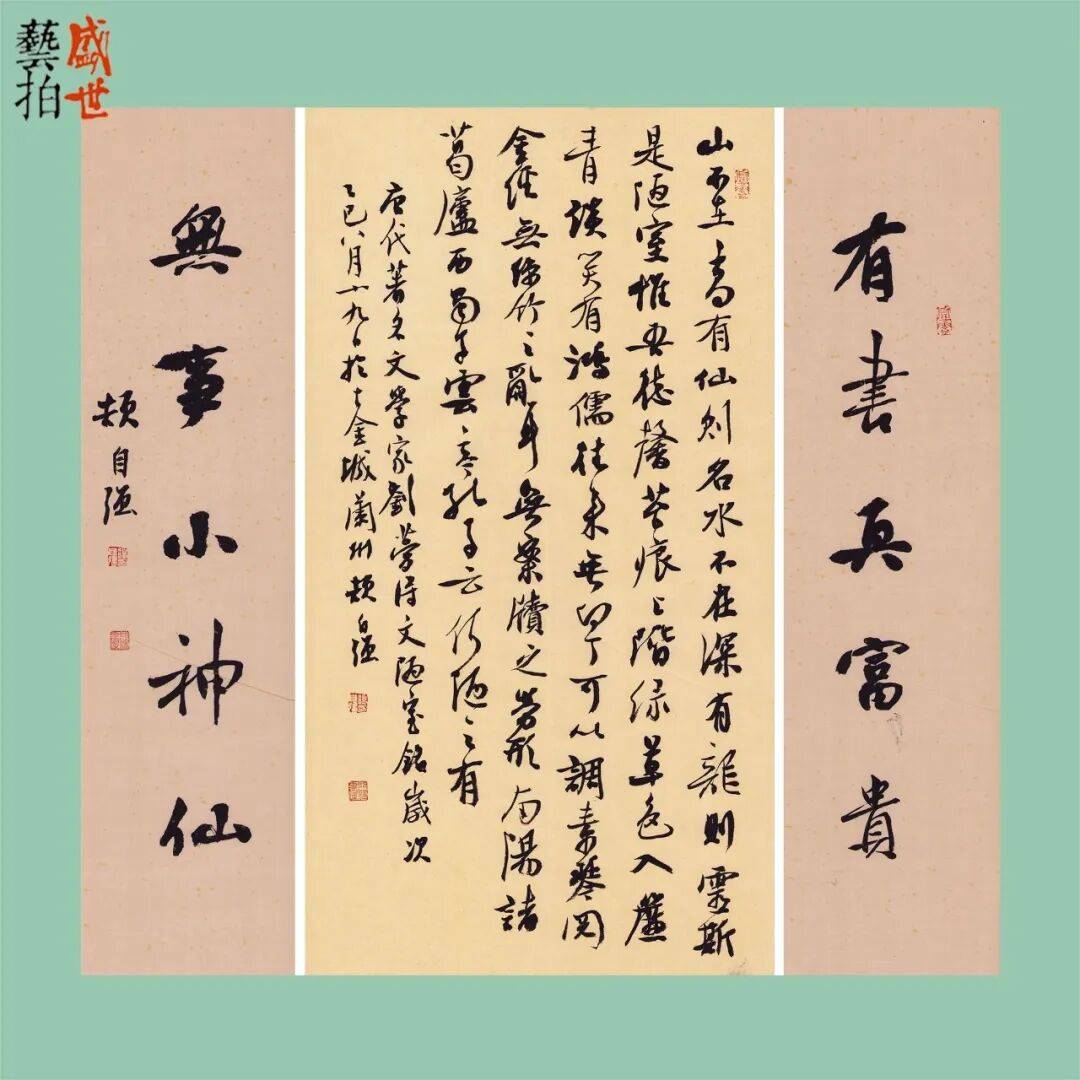 盛世
藝拍
有書真富貴
山不在高有仙则名水不在深有龍則靈斯
是陋室惟吾德馨苔痕上階绿草色入簾
青談笑有鴻儒往来無白丁可以調素琴閲
金经無絲竹之亂耳無案牘之勞形南陽諸
葛廬西蜀子雲亭孔子云何陋之有
唐代著名文學家劉夢得文陋室銘歲次
乙巳八月十九日於金城蘭州自强
無事小神仙
自强